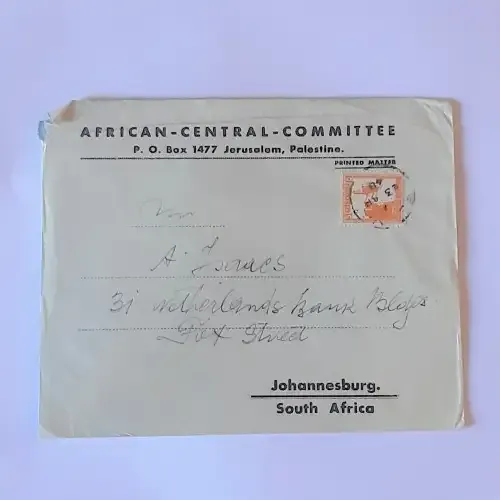 AFRICAN-CENTRAL-COMMITTEE
P. O. Box 1477 Jerusalem, Palestine.
PRINTED MATTER
A. Isaacs
31 Netherlands Bank Bldgs.
Fox Street
Johannesburg.
South Africa